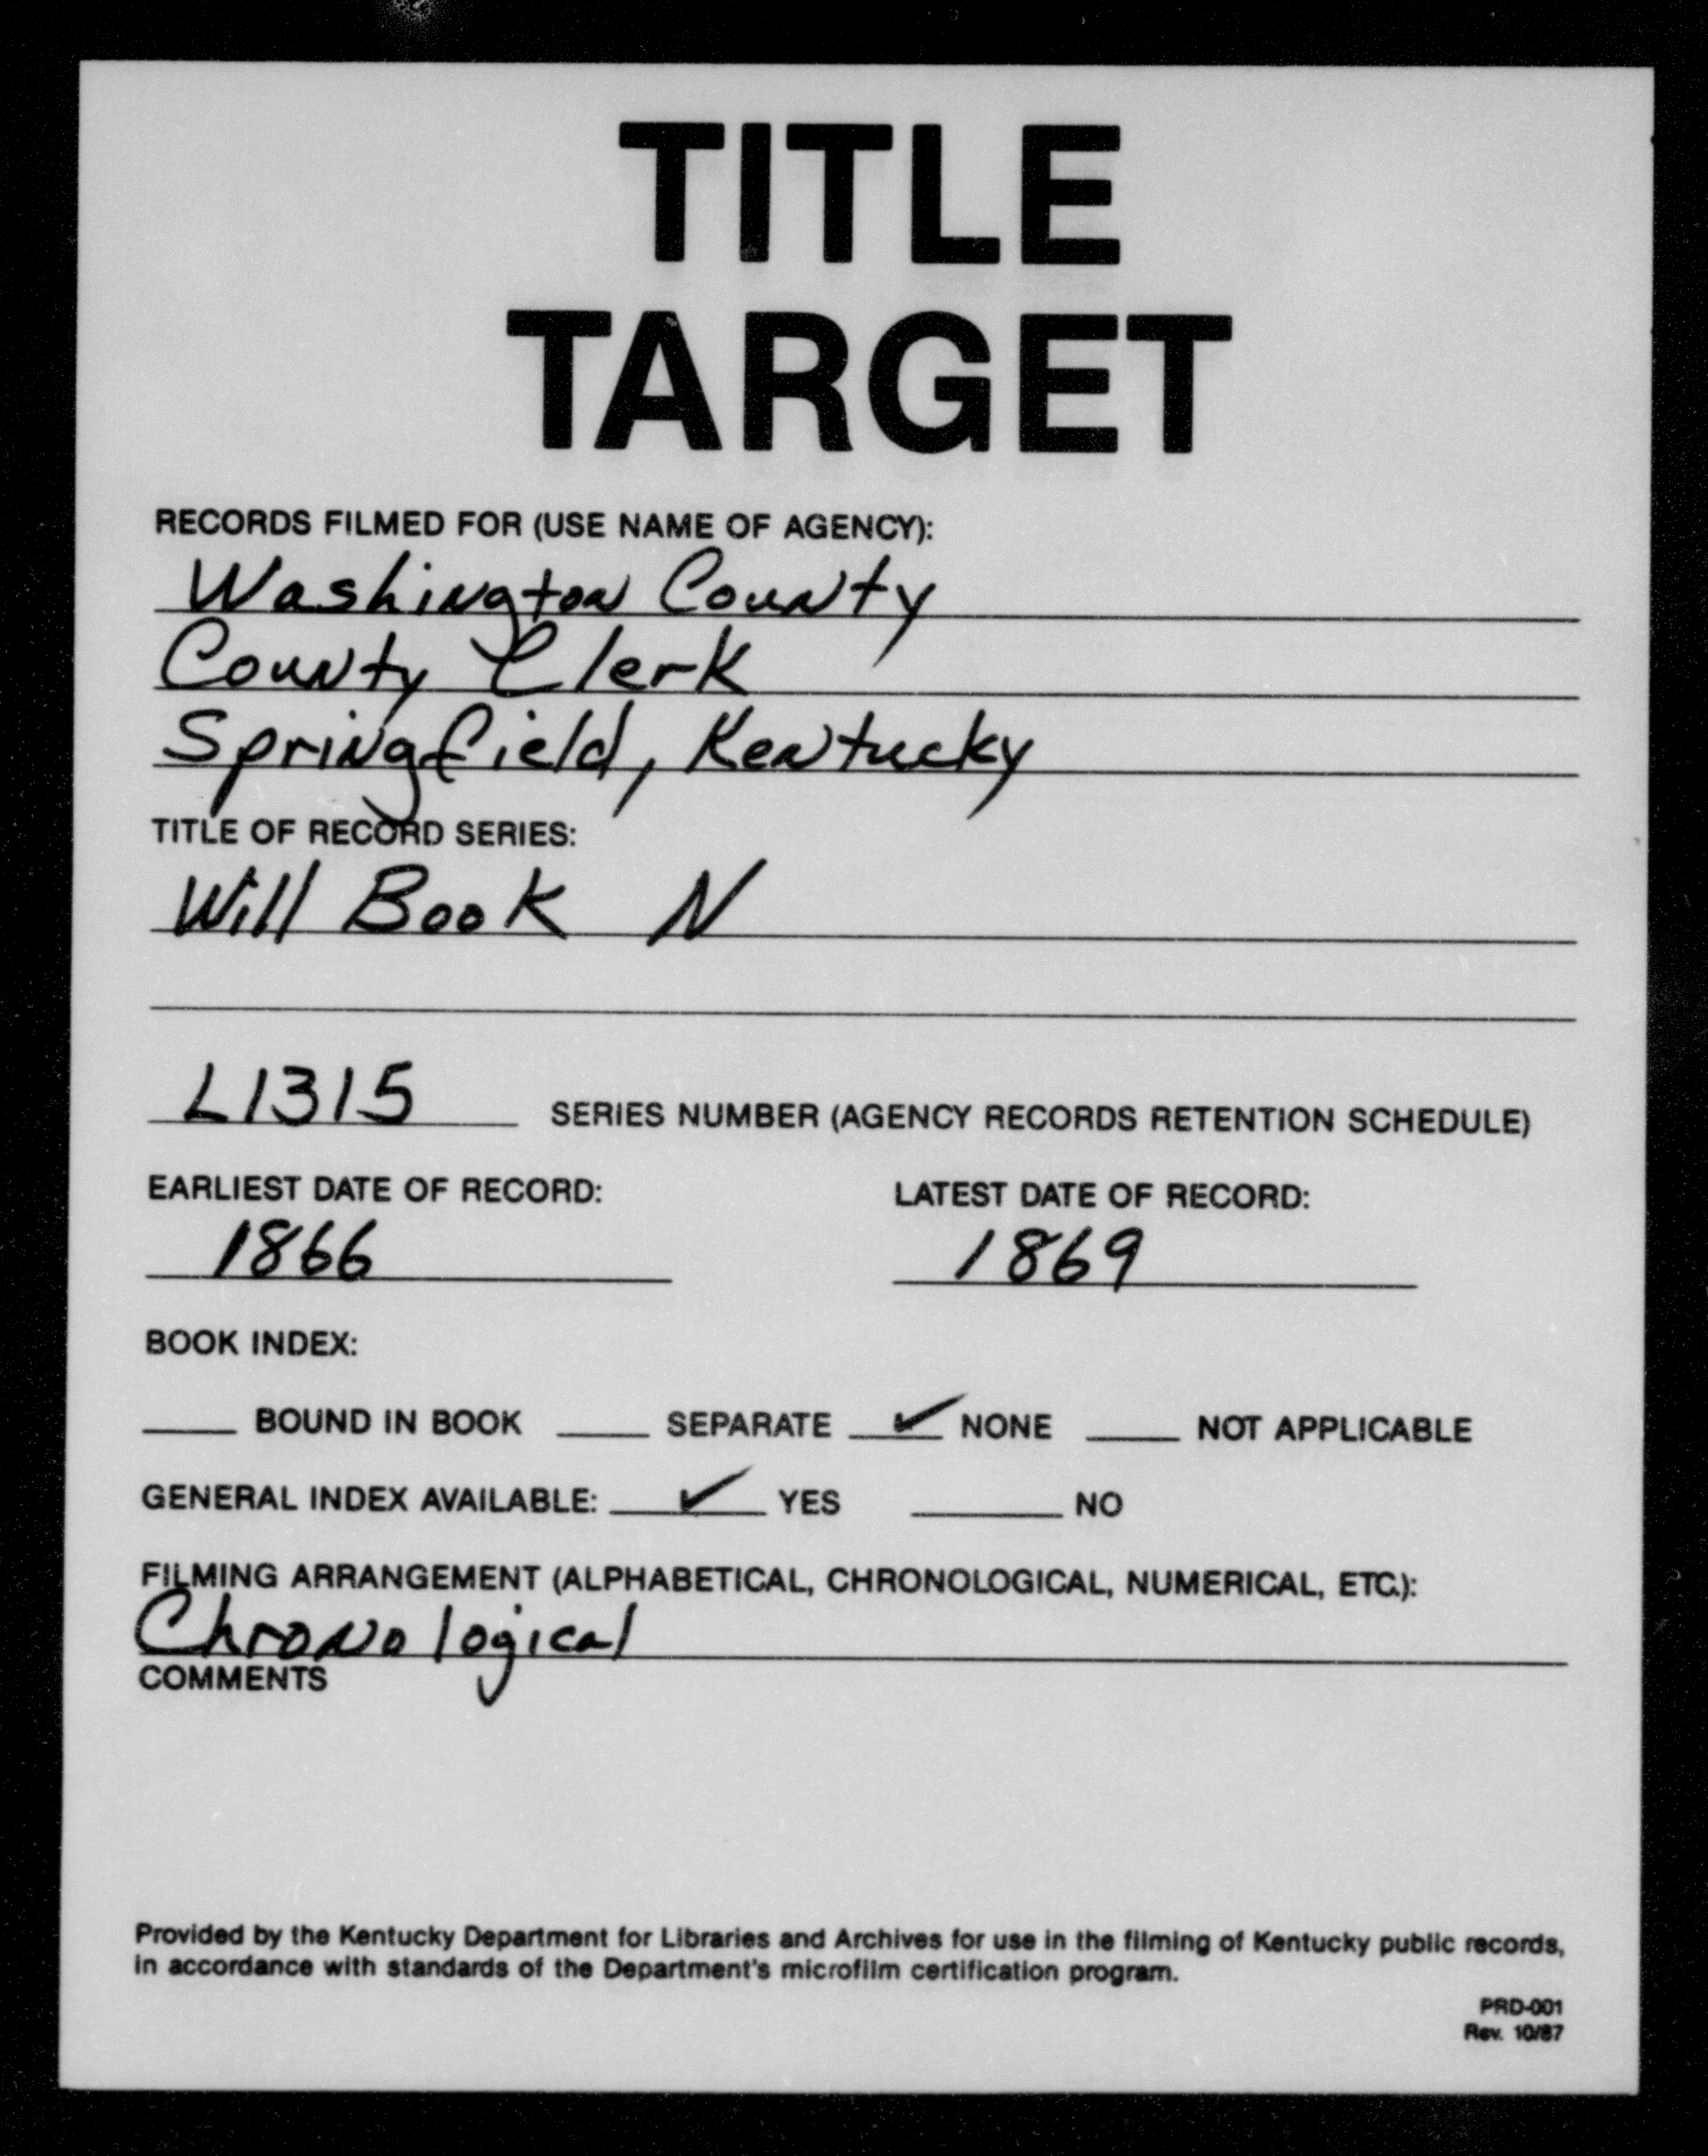 TITLE
TARGET
RECORDS FILMED FOR (USE NAME OF AGENCY):
Washington County
County Clerk
Springfield, Kentucky
TITLE OF RECORD SERIES:
Will Book N
L1315 SERIES NUMBER (AGENCY RECORDS RETENTION SCHEDULE)
EARLIEST DATE OF RECORD: LATEST DATE OF RECORD:
1866 1869
BOOK INDEX:
____ BOUND IN BOOK ____ SEPARATE ✓ NONE ____ NOT APPLICABLE
GENERAL INDEX AVAILABLE: ✓ YES ____ NO
FILMING ARRANGEMENT (ALPHABETICAL, CHRONOLOGICAL, NUMERICAL, ETC.):
Chronological
COMMENTS
Provided by the Kentucky Department for Libraries and Archives for use in the filming of Kentucky public records,
in accordance with standards of the Department's microfilm certification program.
PRD-001
Rev. 10/87